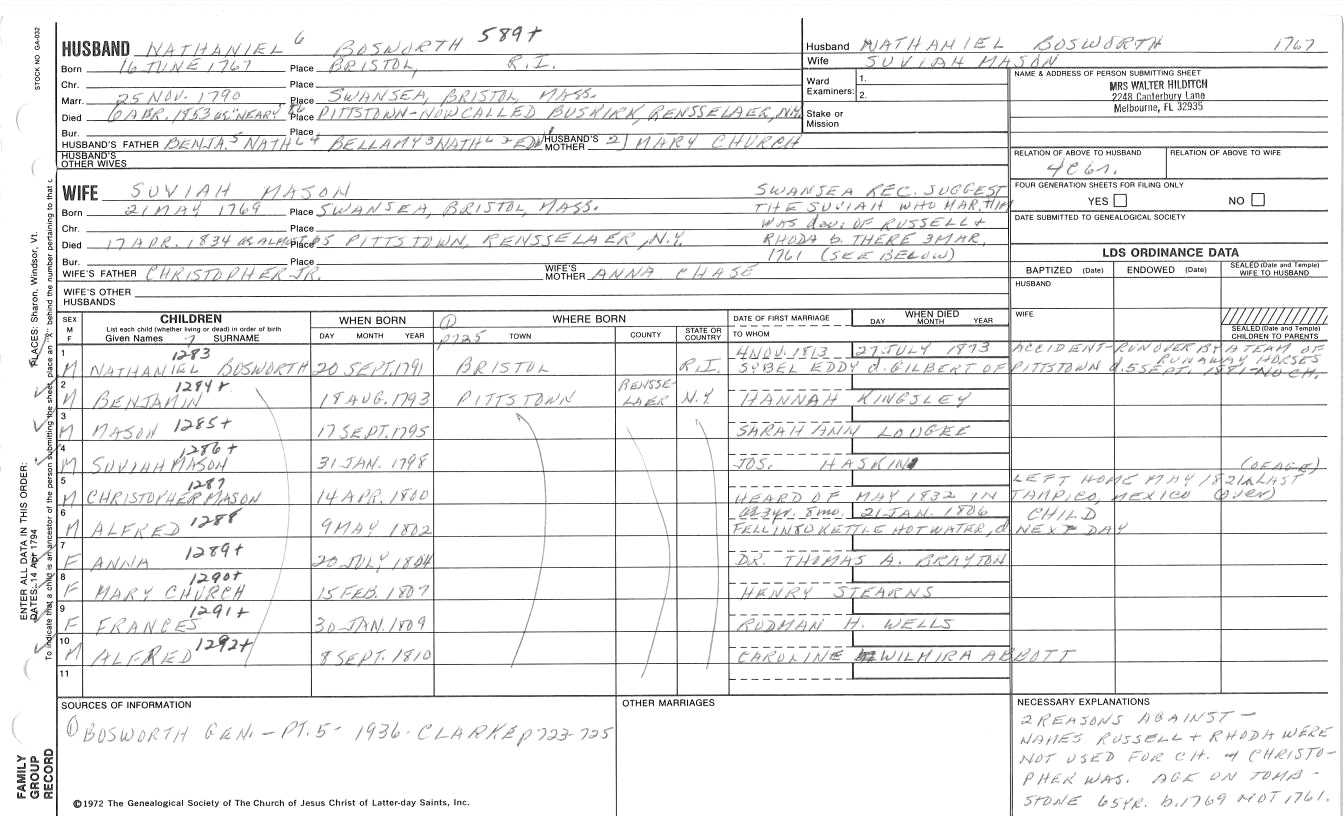 STOCK NO GA-032
HUSBAND NATHANIEL 6 BOSWORTH 589+
Born 16 JUNE 1767 Place BRISTOL, R.I.
Chr. Place
Marr. 25 NOV. 1790 Place SWANSEA, BRISTOL, MASS.
Died 6 APR. 1853 as "NEARY 86 Place PITTSTOWN-NOW CALLED BUSKIRK, RENSSELAER, N.Y.
Bur. Place
HUSBAND'S FATHER BENJA. 5 NATHL 4 BELLAMY 3 NATHL 2 EDW 1 HUSBAND'S MOTHER 2) MARY CHURCH
HUSBAND'S OTHER WIVES
Husband NATHANIEL BOSWORTH 1767
Wife SUVIAH MASON
Ward Examiners: 1.
2.
Stake or Mission
NAME & ADDRESS OF PERSON SUBMITTING SHEET
MRS WALTER HILDITCH
2248 Canterbury Lane
Melbourne, FL 32935
RELATION OF ABOVE TO HUSBAND RELATION OF ABOVE TO WIFE
FOUR GENERATION SHEETS FOR FILING ONLY
YES NO
DATE SUBMITTED TO GENEALOGICAL SOCIETY
WIFE SUVIAH MASON
Born 21 MAY 1769 Place SWANSEA, BRISTOL, MASS.
Chr. Place
Died 17 APR. 1834 Place PITTSTOWN, RENSSELAER, N.Y.
Bur. Place
WIFE'S FATHER CHRISTOPHER JR. WIFE'S MOTHER ANNA CHASE
WIFE'S OTHER HUSBANDS
SWANSEA REC. SUGGEST
THE SUVIAH WHO MAR. HIM
WAS dau. OF RUSSELL +
RHODA b. THERE 3 MAR,
1761 (SEE BELOW)
LDS ORDINANCE DATA
BAPTIZED (Date) ENDOWED (Date) SEALED (Date and Temple) WIFE TO HUSBAND
HUSBAND
WIFE
SEALED (Date and Temple) CHILDREN TO PARENTS
SEX M F
CHILDREN
List each child (whether living or dead) in order of birth
Given Names 7 SURNAME
WHEN BORN
DAY MONTH YEAR
① p725
WHERE BORN
TOWN COUNTY STATE OR COUNTRY
DATE OF FIRST MARRIAGE
TO WHOM
WHEN DIED
DAY MONTH YEAR
1 1283 4 NOV. 1813 27 JULY 1873 ACCIDENT-RUN OVER BY A TEAM OF RUNAWAY HORSES
M NATHANIEL BOSWORTH 20 SEPT. 1791 BRISTOL R.I. SYBEL EDDY d. GILBERT OF PITTSTOWN d. 5 SEPT. 1881-NO CH.
2 1284+
M BENJAMIN 18 AUG. 1793 PITTSTOWN RENSSE-LAER N.Y. HANNAH KINGSLEY
3
M MASON 1285+ 17 SEPT. 1795 SARAH ANN LOUGEE
4 1286+
M SUVIAH MASON 31 JAN. 1798 JOS. HASKIN
5 1287 (OF AGE) LEFT HOME MAY 1821 LAST
M CHRISTOPHER MASON 14 APR. 1800 HEARD OF MAY 1832 IN TAMPICO, MEXICO (over)
6 as 3yr. 8mo. 21 JAN. 1806 CHILD
M ALFRED 1288 9 MAY 1802 FELL INTO KETTLE HOT WATER, d NEXT DAY
7
F ANNA 1289+ 20 JULY 1804 DR. THOMAS A. BRAYTON
8 1290+
F MARY CHURCH 15 FEB. 1807 HENRY STEARNS
9 1291+
F FRANCES 30 JAN. 1809 RODMAN H. WELLS
10 1292+
M ALFRED 8 SEPT. 1810 CAROLINE WILMIRA ABBOTT
11
SOURCES OF INFORMATION
① BOSWORTH GEN. - PT. 5 - 1936 - CLARKE p723-725
OTHER MARRIAGES
NECESSARY EXPLANATIONS
2 REASONS AGAINST -
NAMES RUSSELL + RHODA WERE
NOT USED FOR CH. + CHRISTO-
PHER WAS. AGE ON TOMB -
STONE 65YR. b. 1769 NOT 1761.
©1972 The Genealogical Society of The Church of Jesus Christ of Latter-day Saints, Inc.
FAMILY GROUP RECORD
ENTER ALL DATA IN THIS ORDER:
DATES: 14 Apr 1794
PLACES: Sharon, Windsor, Vt.
To indicate that a child is an ancestor of the person submitting the sheet, place an "X" behind the number pertaining to that c